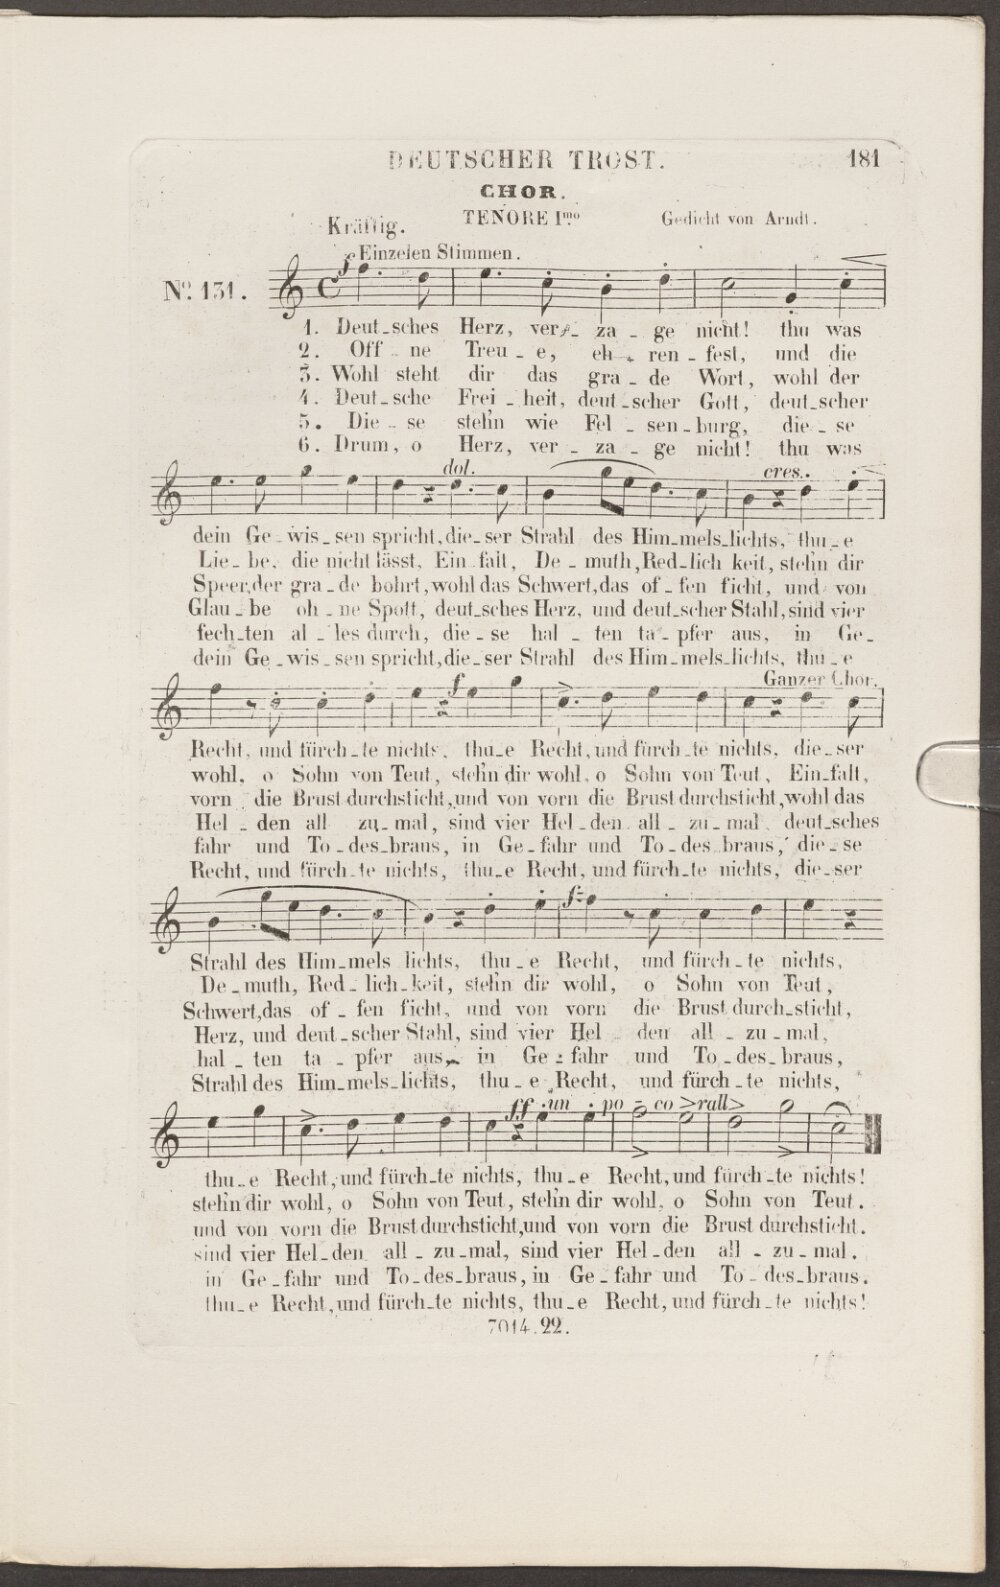 DEUTSCHER TROST. 181
CHOR.
Kräftig. TENORE Imo Gedicht von Arndt.
f Einzelen Stimmen.
No. 131.
1. Deut-sches Herz, ver-za-ge nicht! thu was
2. Off-ne Treu-e, eh-ren-fest, und die
3. Wohl steht dir das gra-de Wort, wohl der
4. Deut-sche Frei-heit, deut-scher Gott, deut-scher
5. Die-se stehn wie Fel-sen-burg, die-se
6. Drum, o Herz, ver-za-ge nicht! thu was
dol. cres.
dein Ge-wis-sen spricht, die-ser Strahl des Him-mels-lichts, thu-e
Lie-be, die nicht lässt, Ein-falt, De-muth, Red-lich keit, stehn dir
Speer, der gra-de bohrt, wohl das Schwert, das of-fen ficht, und von
Glau-be oh-ne Spott, deut-sches Herz, und deut-scher Stahl, sind vier
fech-ten al-les durch, die-se hal-ten ta-pfer aus, in Ge-
dein Ge-wis-sen spricht, die-ser Strahl des Him-mels-lichts, thu-e
f Ganzer Chor.
Recht, und fürch-te nichts, thu-e Recht, und fürch-te nichts, die-ser
wohl, o Sohn von Teut, stehn dir wohl, o Sohn von Teut, Ein-falt,
vorn die Brust durchsticht, und von vorn die Brust durchsticht, wohl das
Hel-den all zu-mal, sind vier Hel-den all-zu-mal deut-sches
fahr und To-des-braus, in Ge-fahr und To-des braus, die-se
Recht, und fürch-te nichts, thu-e Recht, und fürch-te nichts, die-ser
f
Strahl des Him-mels lichts, thu-e Recht, und fürch-te nichts,
De-muth, Red-lich-keit, stehn dir wohl, o Sohn von Teut,
Schwert, das of-fen ficht, und von vorn die Brust durch-sticht,
Herz, und deut-scher Stahl, sind vier Hel den all-zu-mal,
hal-ten ta-pfer aus, in Ge-fahr und To-des-braus,
Strahl des Him-mels-lichts, thu-e Recht, und fürch-te nichts,
ff un po-co rall
thu-e Recht, und fürch-te nichts, thu-e Recht, und fürch-te nichts!
stehn dir wohl, o Sohn von Teut, stehn dir wohl, o Sohn von Teut.
und von vorn die Brust durchsticht, und von vorn die Brust durchsticht.
sind vier Hel-den all-zu-mal, sind vier Hel-den all-zu-mal.
in Ge-fahr und To-des-braus, in Ge-fahr und To-des-braus.
thu-e Recht, und fürch-te nichts, thu-e Recht, und fürch-te nichts!
7014.22.